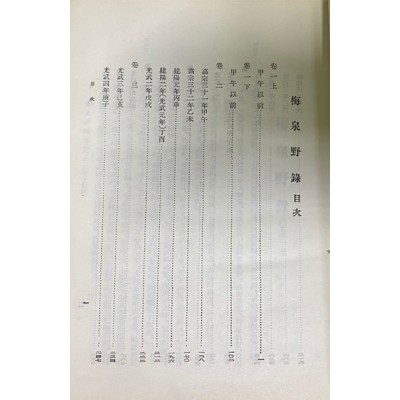 梅泉野錄 目次
卷一上
甲午以前……一
卷一下
甲午以前……一〇三
卷二
高宗三十一年甲午……一三八
高宗三十二年乙未……一七〇
建陽元年丙申……一九六
建陽二年(光武元年)丁酉
光武二年戊戌
卷三
光武三年己亥
光武四年庚子……二四七
目次
一